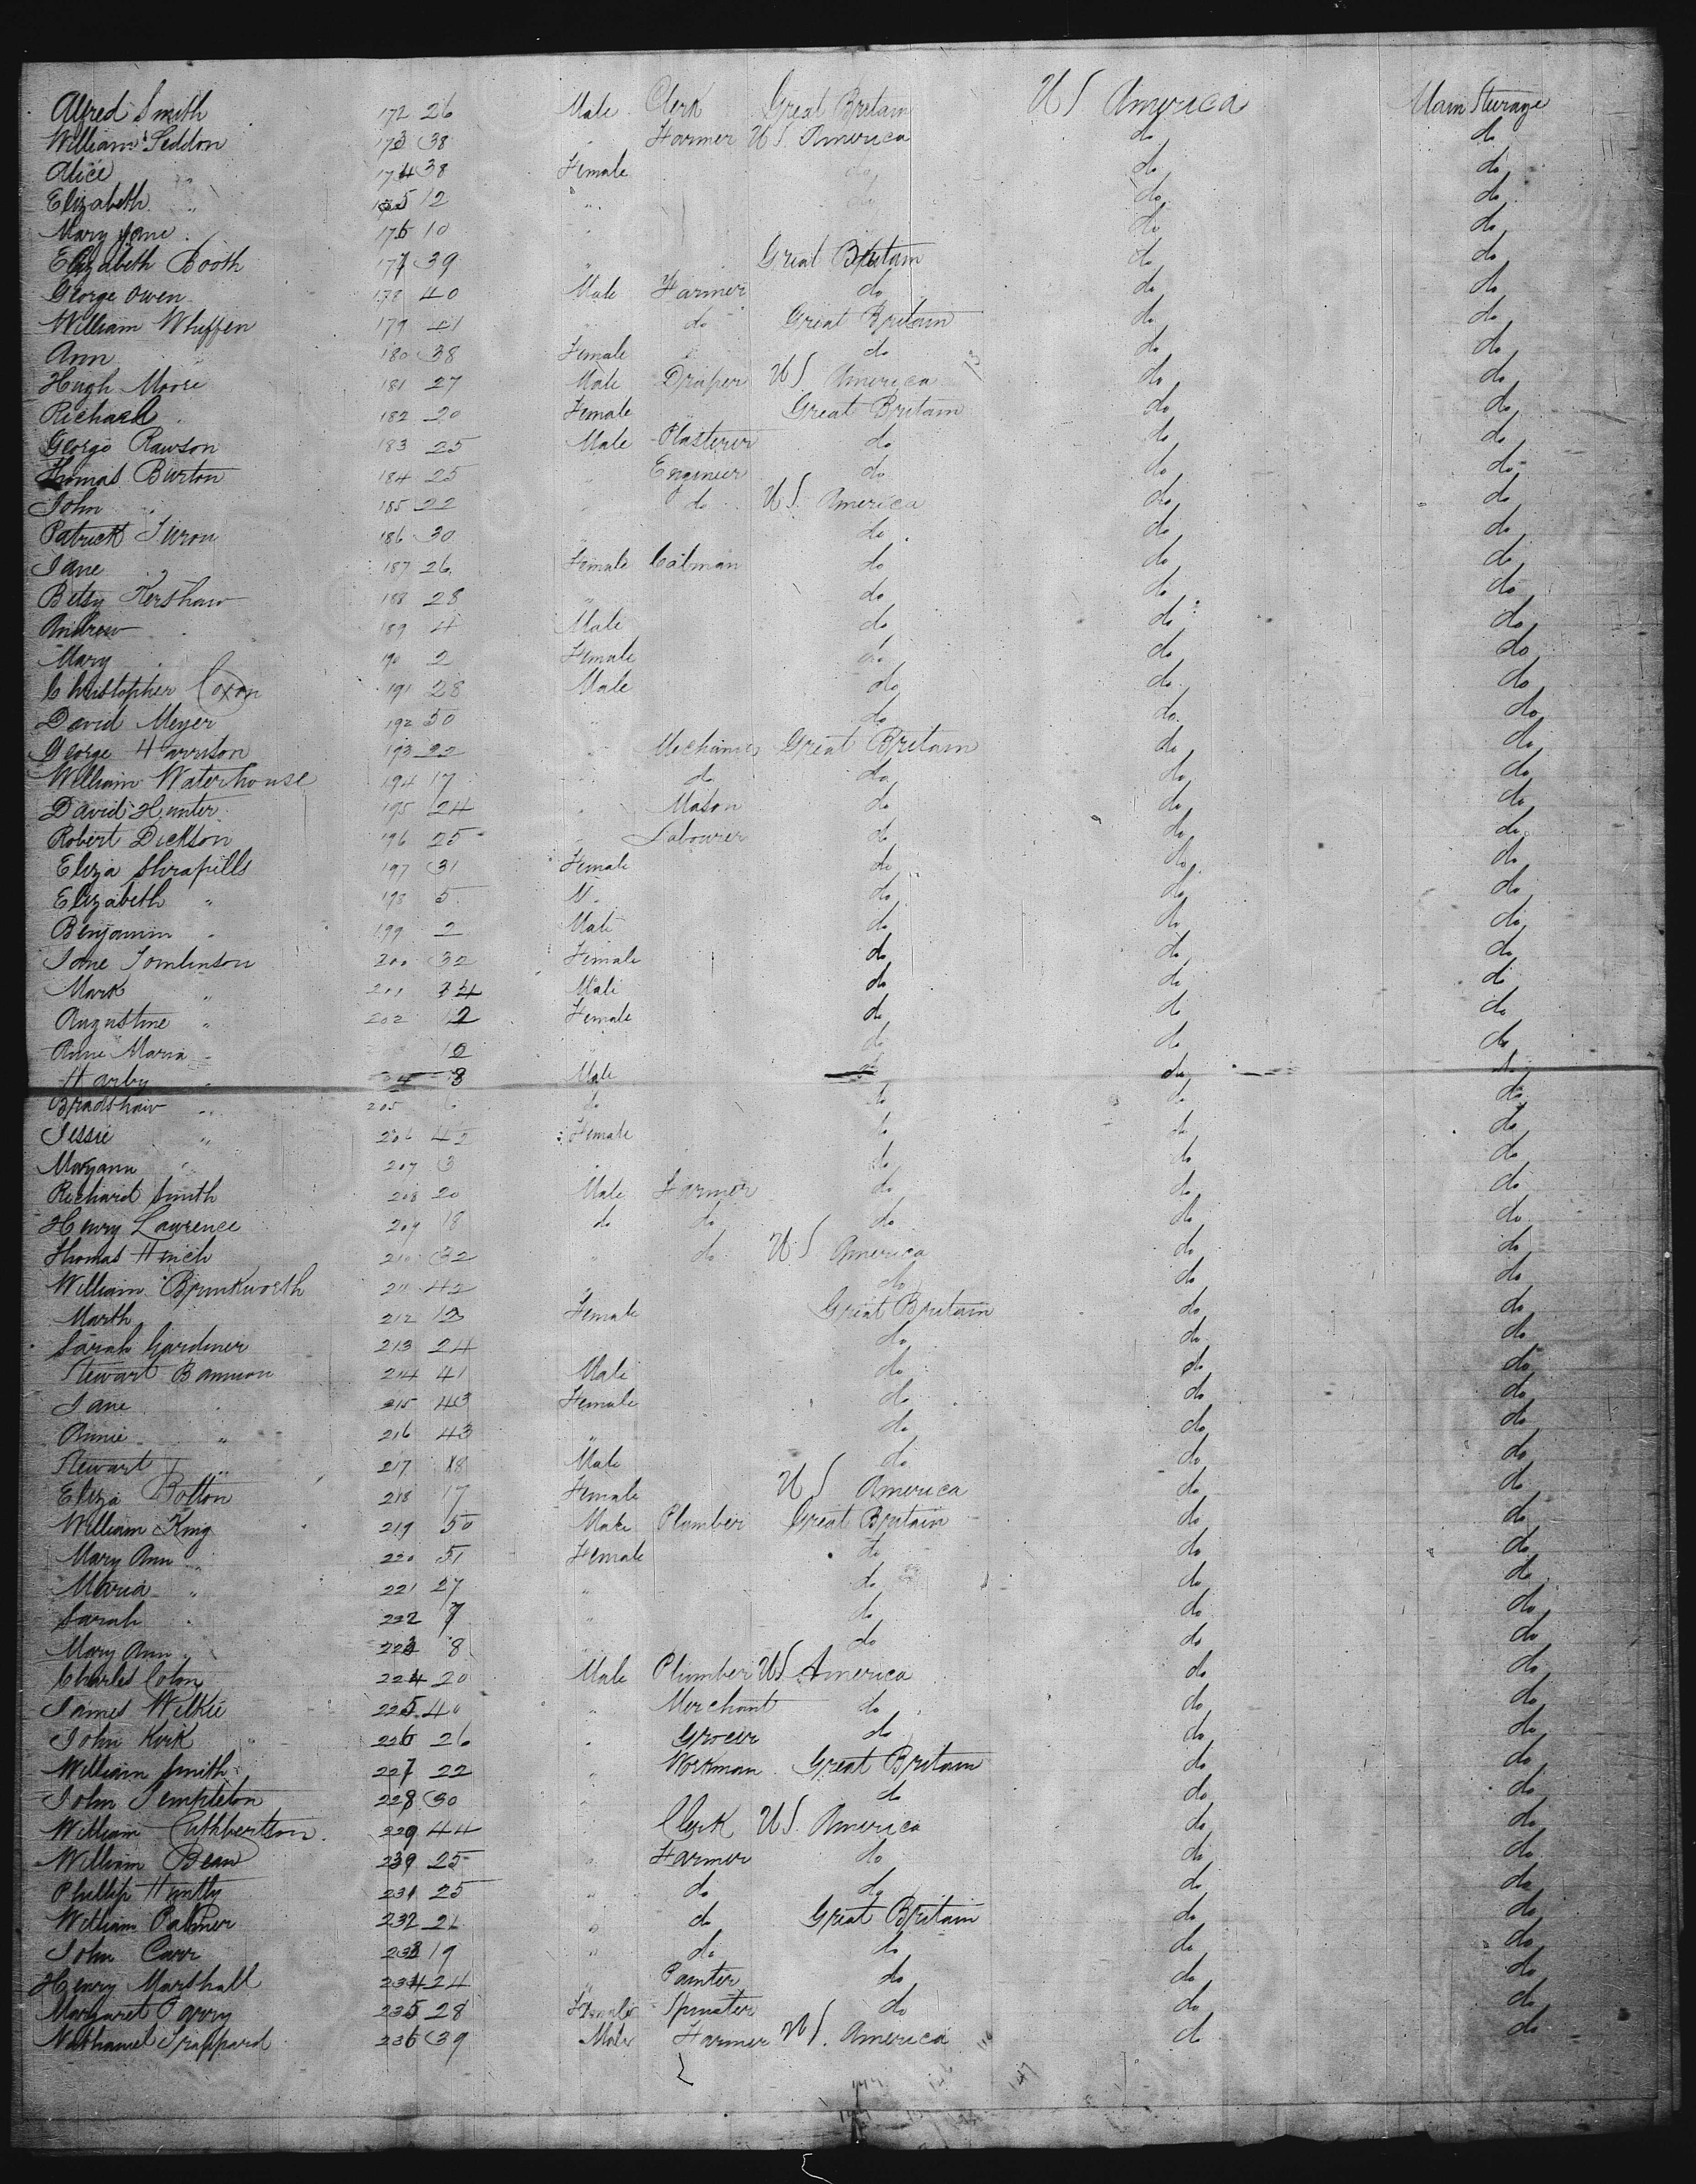 Alfred Smith 172 26 Male Clerk Great Britain U S America Main Steerage
William Seddon 173 38 " Farmer U S. America do do
Alice " 174 38 Female do do do
Elizabeth " 175 12 " do do do
Mary Jane " 176 10 " do do
Elizabeth Booth 177 39 " Great Britain do do
George Owen 178 40 Male Farmer do do do
William Whiffen 179 21 " do Great Britain do do
Ann " 180 38 Female do do do
Hugh Moore 181 27 Male Draper U S America do do
Richard " 182 20 Female Great Britain do do
George Rawson 183 25 Male Plasterer do do do
Thomas Burton 184 25 " Engineer do do do
John " 185 22 " do U S. America do do
Patrick 186 30 " do do do
Jane " 187 26 Female do do do
Betsy Kershaw 188 28 " do do do
Andrew " 189 4 Male do do do
Mary " 190 2 Female do do do
Christopher Coxon 191 28 Male do do do
David Meyer 192 50 " do do do
George Harrison 193 22 " Mechanic Great Britain do do
William Waterhouse 194 17 " do do do do
David Hunter 195 24 " Mason do do do
Robert Dickson 196 25 " Labourer do do do
Eliza 197 31 Female do do do
Elizabeth " 198 5 do do do
Benjamin " 199 2 Male do do do
Jane Tomlinson 200 32 Female do do do
Mark " 201 14 Male do do do
Augustine " 202 12 Female do do do
Anne Maria " 10 " do do do
Harby " 8 Male do do do
Bradshaw " 205 6 do do do do
Jessie " 206 Female do do do
Maryann " 207 3 " do do do
Richard Smith 208 20 Male Farmer do do do
Henry Lawrence 209 18 do do do do do
Thomas Hinch 210 32 " do U. S America do do
William Brinkworth 211 42 " do do do
Marth 212 13 Female Great Britain do do
Sarah Gardiner 213 24 do do do
Stewart Bannion 214 41 Male do do do
Jane " 215 43 Female do do do
Annie " 216 43 " do do do
Stewart " 217 18 Male do do do
Eliza Bolton 218 17 Female U S America do do
William King 219 50 Male Plumber Great Britain do do
Mary Ann " 220 51 Female do do do
Maria " 221 27 " do do do
Sarah " 222 7 " do do do
Mary Ann " 223 8 do do do
Charles 224 20 Male Plumber U S America do do
James Wilkie 225 40 " Merchant do do do
John Kirk 226 26 " Grocer do do do
William Smith 227 22 " Workman Great Britain do do
John Templeton 228 30 " do do do
William Cuthbertson 229 44 " Clerk U S. America do do
William Bean 230 25 " Farmer do do do
Phillip Huntly 231 25 " do do do do
William Palmer 232 21 " do Great Britain do do
John Carr 233 19 " do do do do
Henry Marshall 234 24 " Painter do do do
Margaret Parry 235 28 Female Spinster do do do
Nathaniel Trappard 236 39 Male Farmer U S. America do do